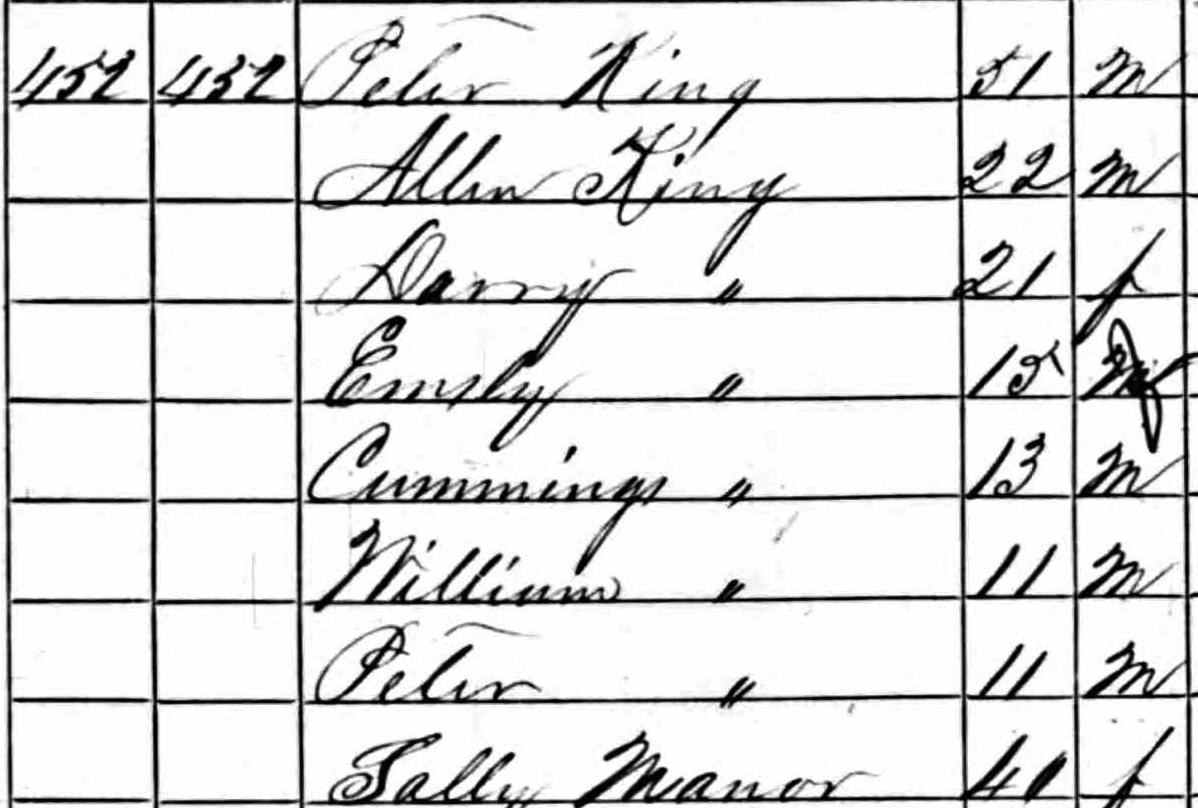 452 432 Peter King 51 m
Allen King 22 m
Darry " 21 f
Emsly " 15 f
Cummings " 13 m
William " 11 m
Peter " 11 m
Sally Manor 40 f